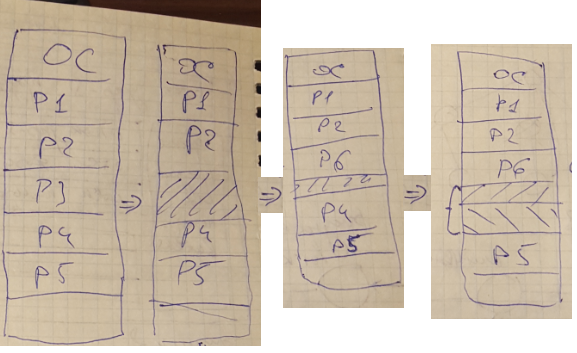 ОС
P1
P2
P3
P4
P5
ОС
P1
P2
P4
P5
ОС
P1
P2
P6
P4
P5
ОС
P1
P2
P6
P5